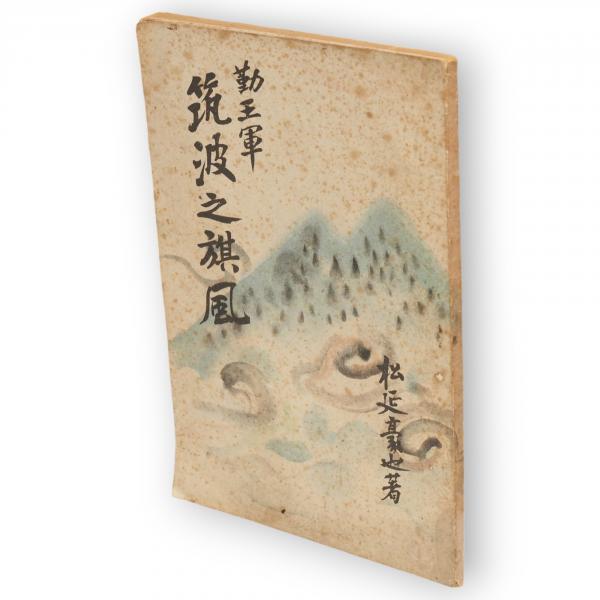 勤王軍
筑波之旗風
松延豪也著